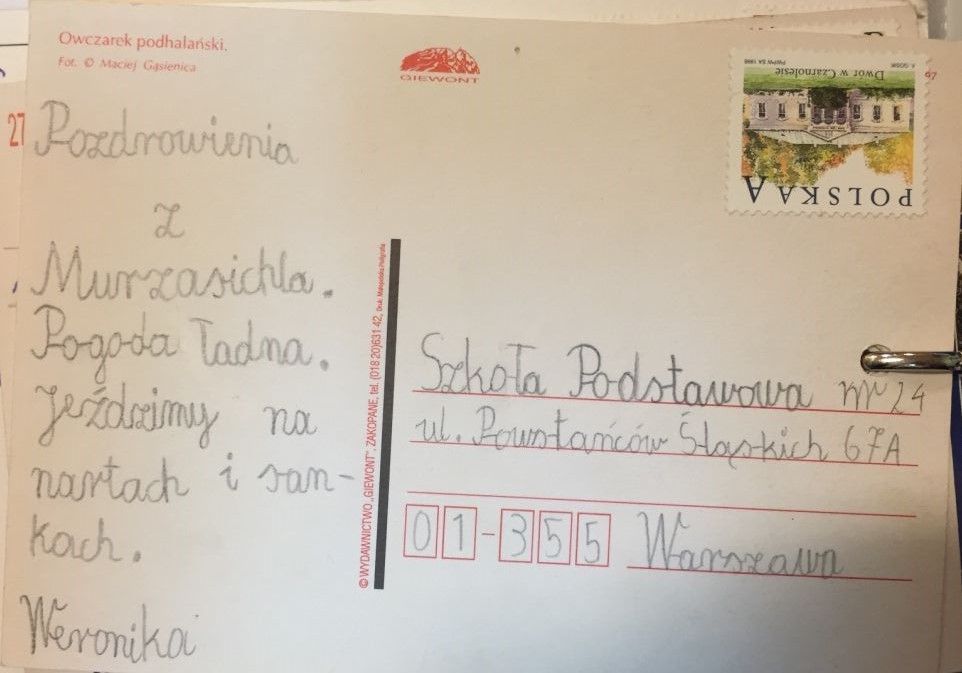 Owczarek podhalański.
Fot. © Maciej Gąsienica
GIEWONT
67
F. GOSIK
PWPW SA 1998
Dwór w Czarnolesie
POLSKA A
27
Pozdrowienia
z
Murzasichla.
Pogoda ładna.
Jeździmy na
nartach i san-
kach.
Weronika
© WYDAWNICTWO „GIEWONT”, ZAKOPANE, tel. (018 20)631 42, Druk: Małopolska Poligrafia
Szkoła Podstawowa nr 24
ul. Powstańców Śląskich 67A
01-355 Warszawa